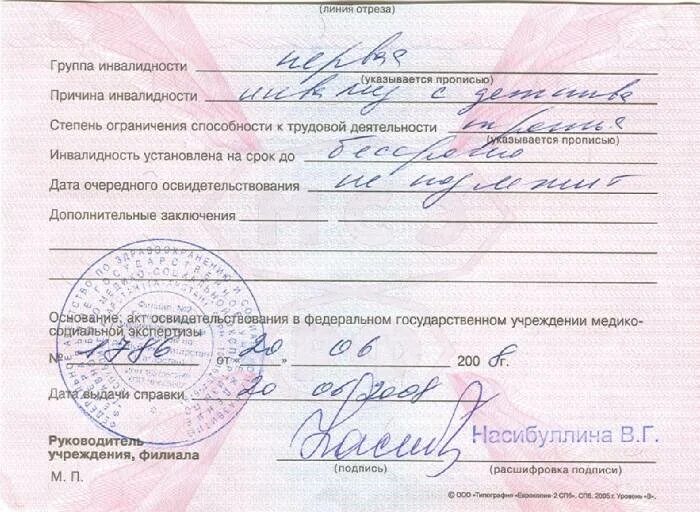 (линия отреза)
Группа инвалидности первая
(указывается прописью)
Причина инвалидности инвалид с детства
Степень ограничения способности к трудовой деятельности третья
(указывается прописью)
Инвалидность установлена на срок до бессрочно
Дата очередного освидетельствования не подлежит
Дополнительные заключения
Основание: акт освидетельствования в федеральном государственном учреждении медико-
социальной экспертизы
№ 1786 от "20" 06 2008г.
Дата выдачи справки 20 06/2008
Руководитель
учреждения, филиала
Насибуллина В.Г.
М. П.
(подпись)
(расшифровка подписи)
© ООО «Типография «Еврокопия-2 СПб». СПб. 2005 г. Уровень «В».